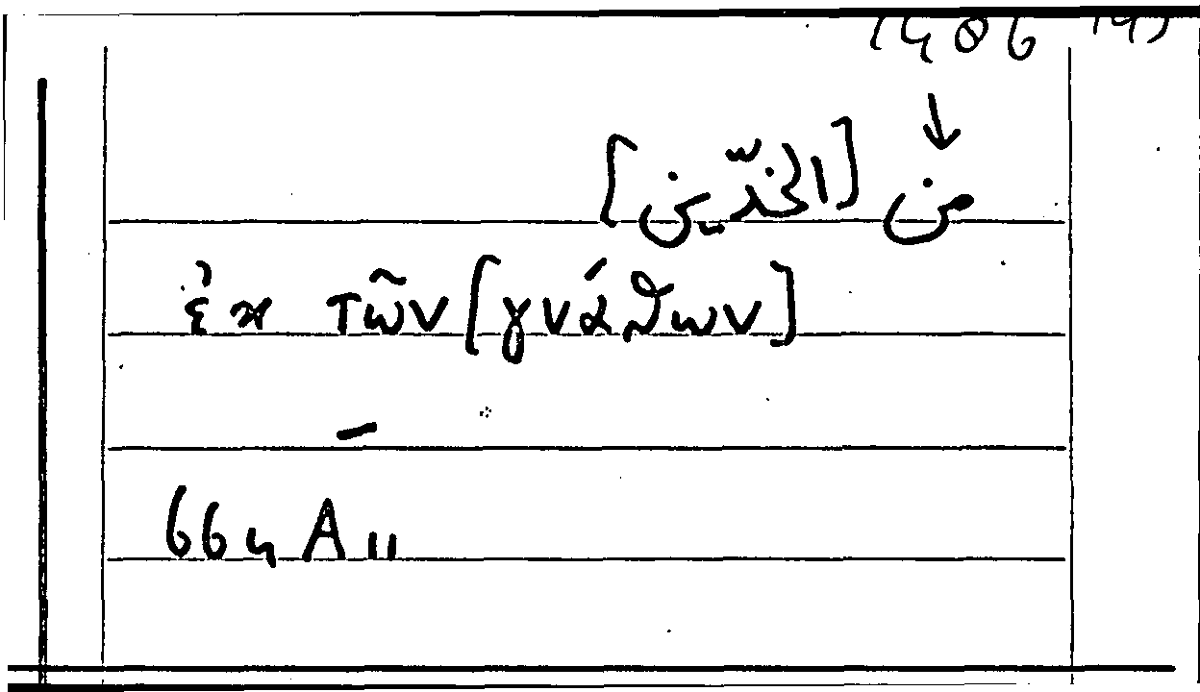 من [الخدّين]
ἐκ τῶν [γνάθων]
—
664 A 11